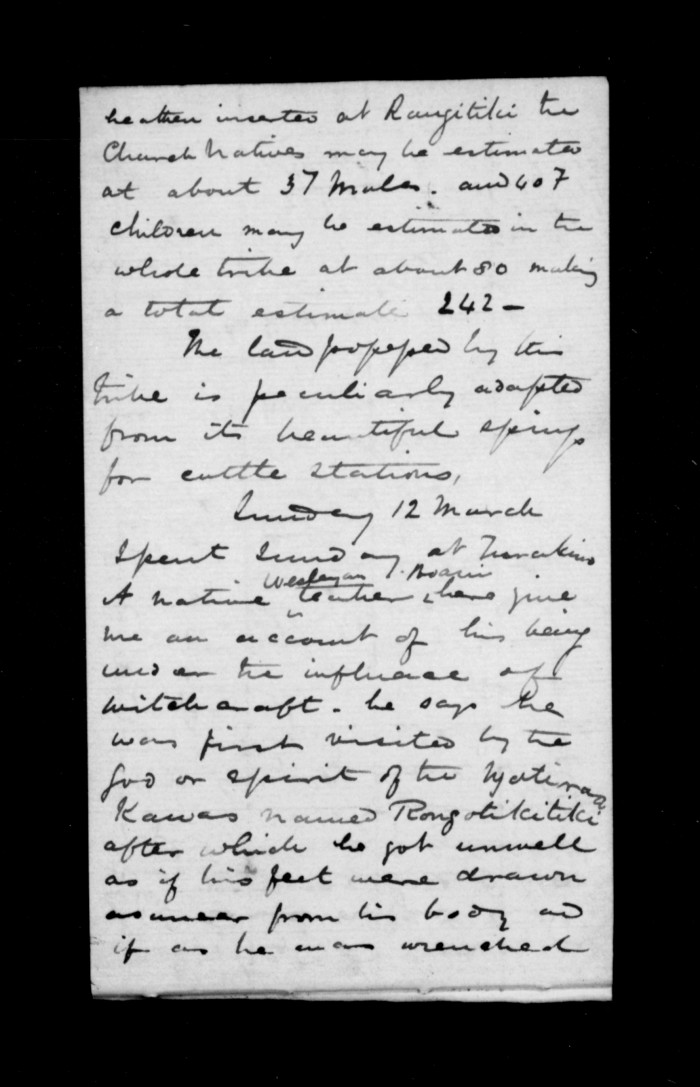 heathen inserted at Rangitiki the
Church Natives may be estimated
at about 37 Males. and 40 F
children may be estimated in the
whole tribe at about 80 making
a total estimate 242 –
The land possessed by this
tribe is peculiarly adapted
from its beautiful springs
for cattle stations,
Sunday 12 March
Spent Sunday at Turakina
A native Wesleyan teacher here give
me an account of his being
under the influence of
witchcraft. he says he
was first visited by the
god or spirit of the Ngatiraa
Kawas named Rongotikitiki
after which he got unwell
as if his feet were drawn
from his body and
if as he was wrenched